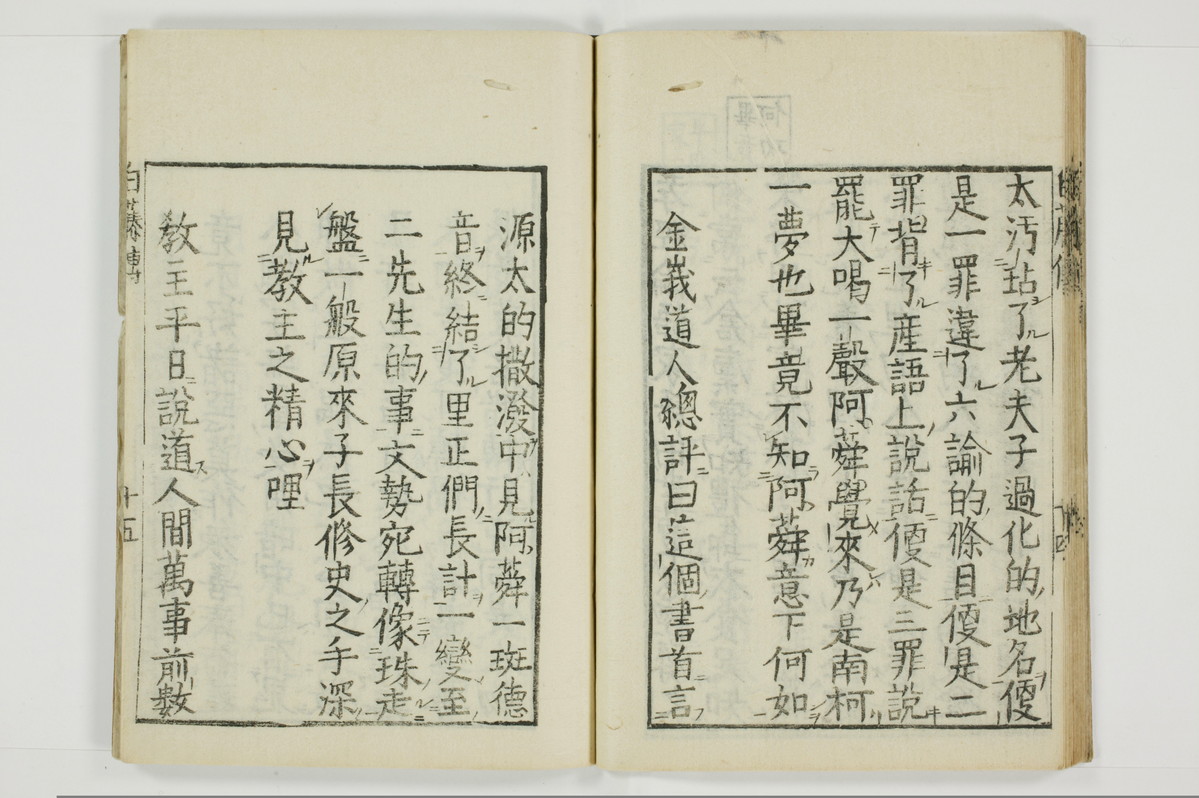 太汚玷了老夫子過化的地名便
是一罪違了六諭的條目便是二
罪背了産語上說話便是三罪說
罷大喝一聲阿蕣覺來乃是南柯
一夢也畢竟不知阿蕣意下何如
金峩道人總評曰這個書首言
源太的撒潑中見阿蕣一斑德
音終結了里正們長計一變至
二先生的事文勢宛轉像珠走
盤一般原來子長修史之手深
見教主之精心哩
教主平日說道人間萬事前數
白藤傳
十五